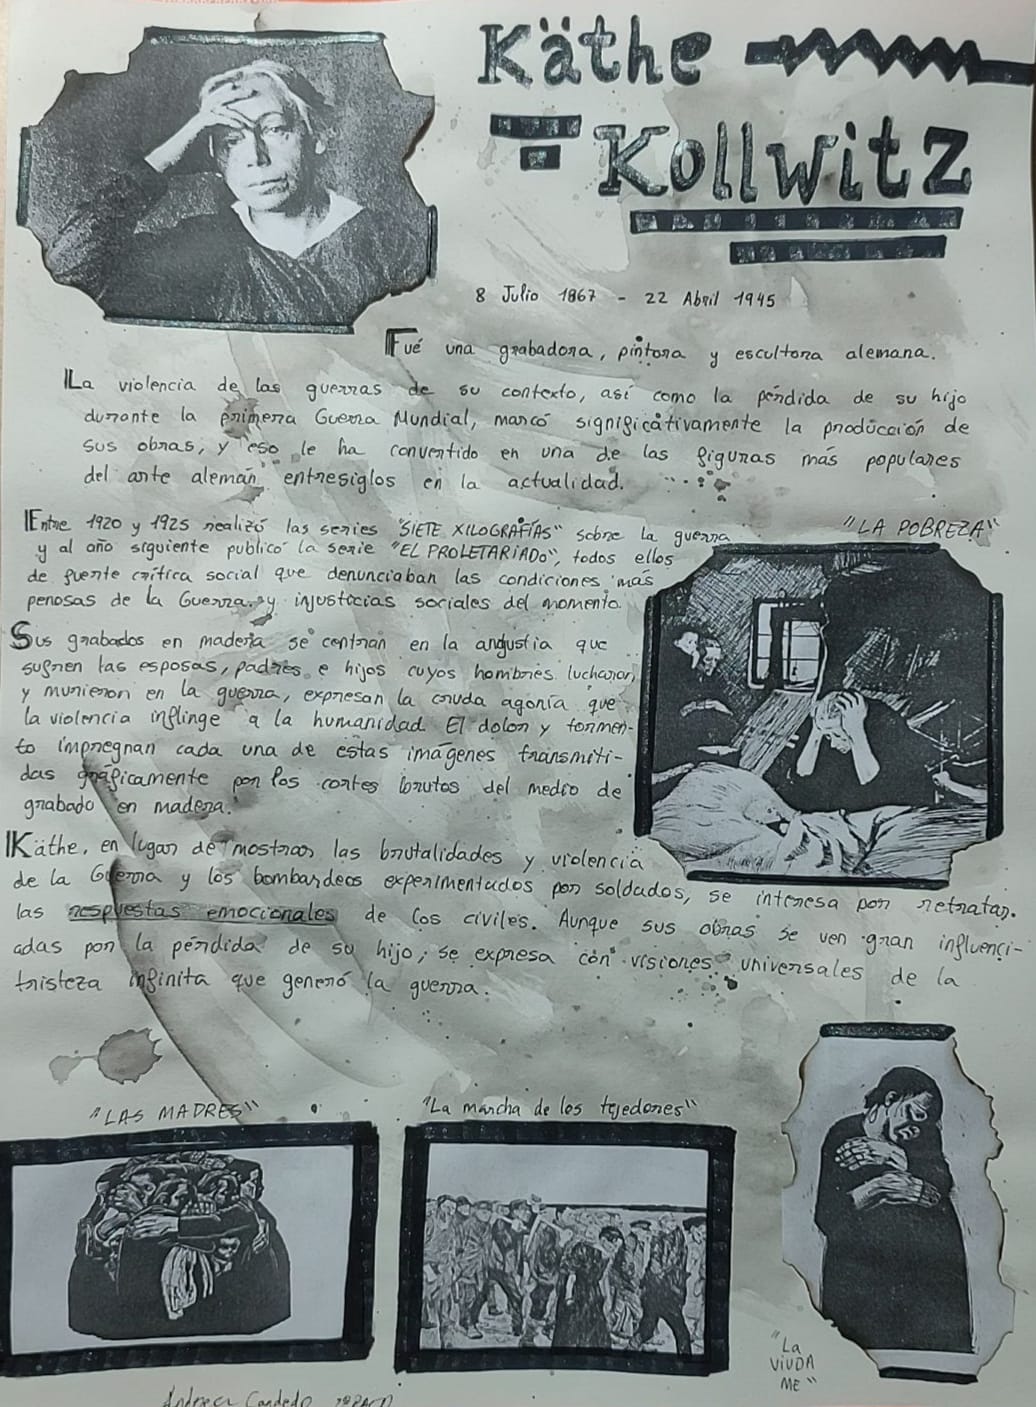 Käthe
Kollwitz
8 Julio 1867 - 22 Abril 1945
Fué una grabadora, pintora y escultora alemana.
La violencia de las guerras de su contexto, así como la pérdida de su hijo
durante la primera Guerra Mundial, marcó significativamente la producción de
sus obras, y eso le ha convertido en una de las figuras más populares
del arte alemán entresiglos en la actualidad.
Entre 1920 y 1925 realizó las series "SIETE XILOGRAFÍAS" sobre la guerra
y al año siguiente publicó la serie "EL PROLETARIADO", todos ellos
de fuente crítica social que denunciaban las condiciones más
penosas de la Guerra y injusticias sociales del momento.
"LA POBREZA"
Sus grabados en madera se centran en la angustia que
sufren las esposas, padres e hijos cuyos hombres lucharon
y murieron en la guerra, expresan la cruda agonía que
la violencia inflinge a la humanidad. El dolor y tormen-
to impregnan cada una de estas imágenes transmiti-
das gráficamente por los cortes brutos del medio de
grabado en madera.
Käthe, en lugar de mostrar las brutalidades y violencia
de la Guerra y los bombardeos experimentados por soldados, se interesa por retratar.
las respuestas emocionales de los civiles. Aunque sus obras se ven gran influenci-
adas por la pérdida de su hijo, se expresa con visiones universales de la
tristeza infinita que generó la guerra.
"LAS MADRES"
"La marcha de los tejedores"
"La
VIUDA
ME"
Andrea